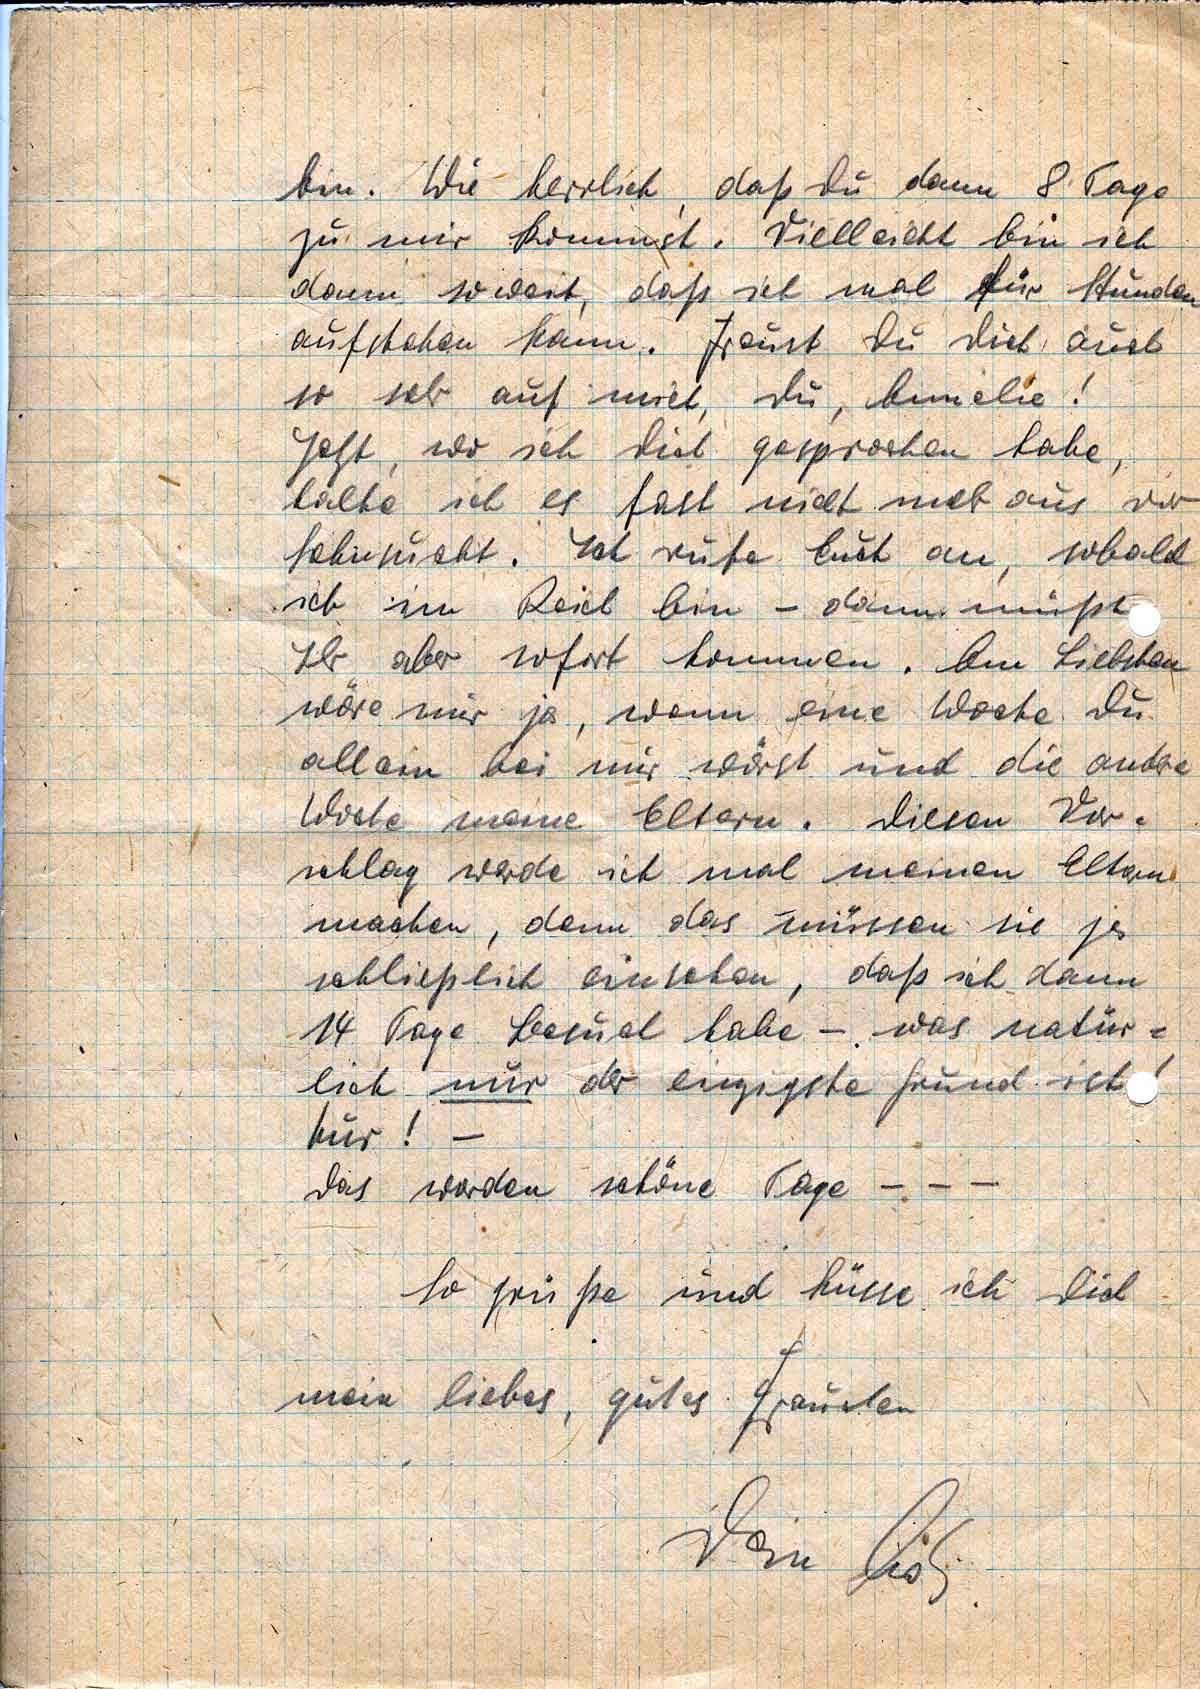 bin. Wie herrlich, daß Du dann 8 Tage
zu mir kommst. Vielleicht bin ich
dann soweit, daß ich mal für Stunden
aufstehen kann. Freust Du Dich auch
so sehr auf mich, Du, Annelie!
Jetzt, wo ich Dich gesprochen habe,
halte ich es fast nicht mehr aus vor
Sehnsucht. Ich rufe Euch an, sobald
ich im Reich bin – dann müßt
Ihr aber sofort kommen. Am Liebsten
wäre mir ja, wenn eine Woche Du
allein bei mir wärst und die andre
Woche meine Eltern. Diesen Vor-
schlag werde ich mal meinen Eltern
machen, denn das müssen sie ja
schließlich einsehen, daß ich dann
14 Tage Besuch habe – was natür-
lich nur der einzigste Grund ist!
Nur! –
Das werden schöne Tage – – –
So grüße und küsse ich Dich
mein liebes, gutes Frauchen
Dein